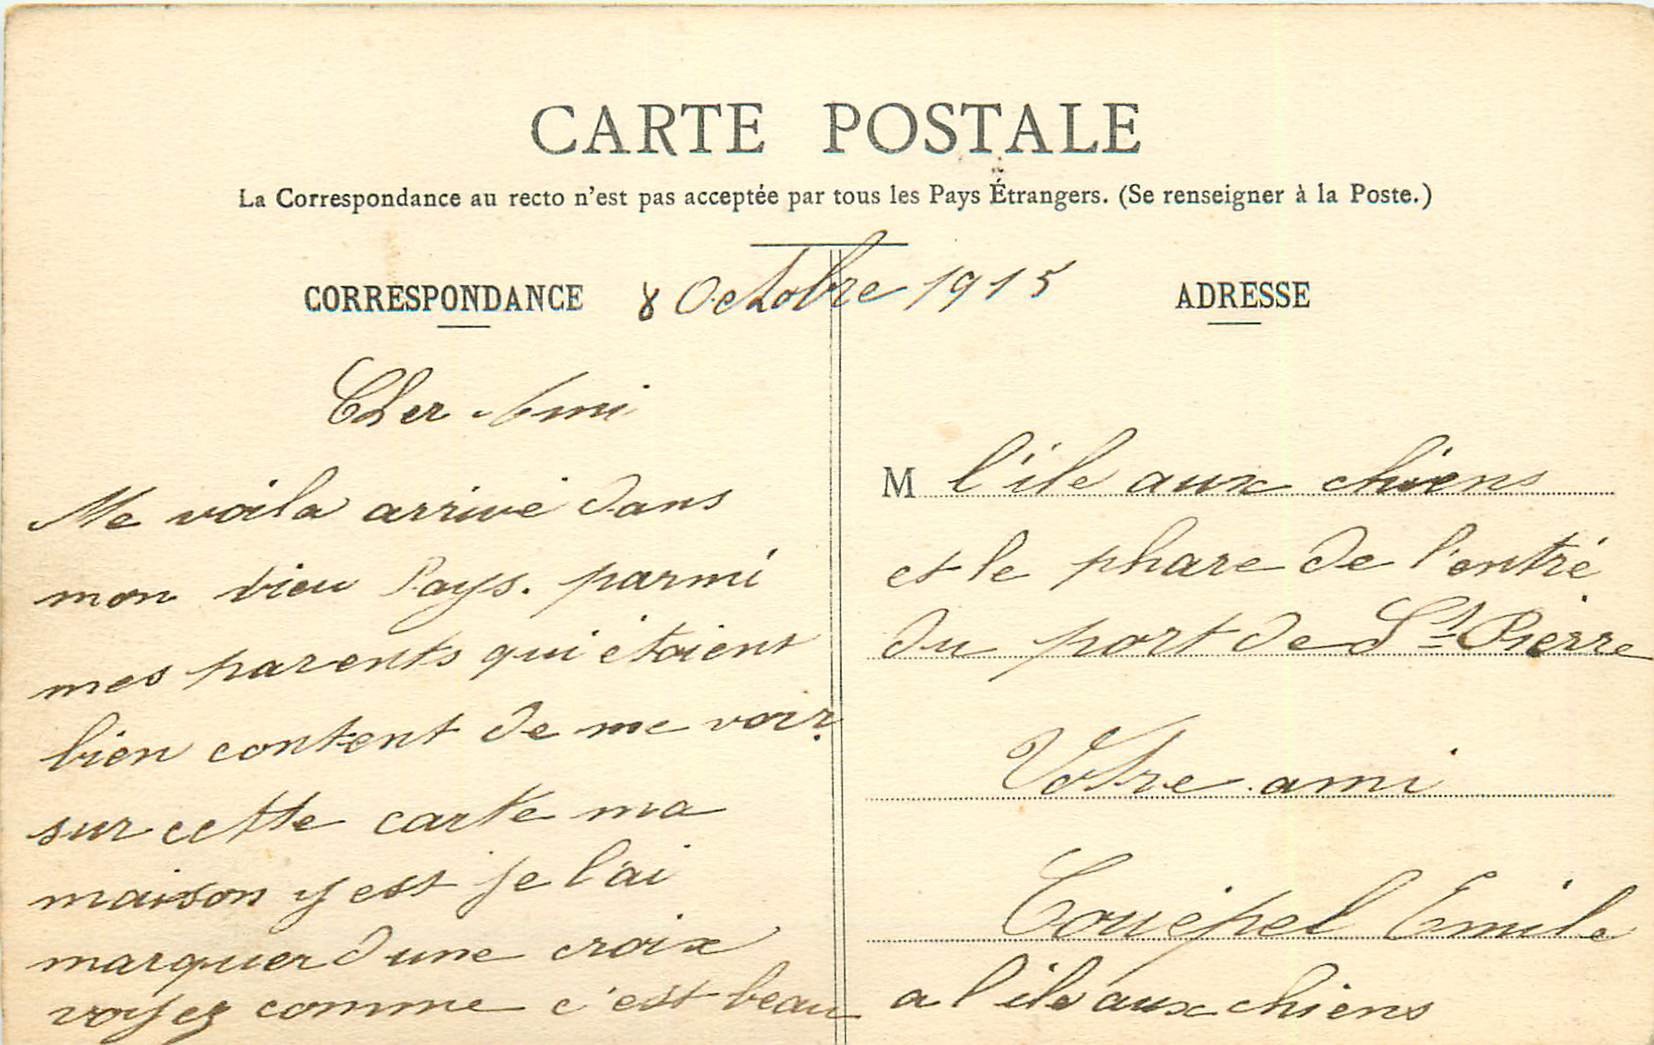 CARTE POSTALE
La Correspondance au recto n'est pas acceptée par tous les Pays Étrangers. (Se renseigner à la Poste.)
CORRESPONDANCE
8 Octobre 1915
ADRESSE
Cher Ami
Me voila arrivé dans
mon vieu Pays. parmi
mes parents qui étaient
bien content de me voir.
sur cette carte ma
maison y est je l'ai
marquer d'une croix
voyez comme c'est beau
M l'ile aux chiens
et le phare de l'entré
du port de St Pierre
Votre ami
Emile
a l'ile aux chiens